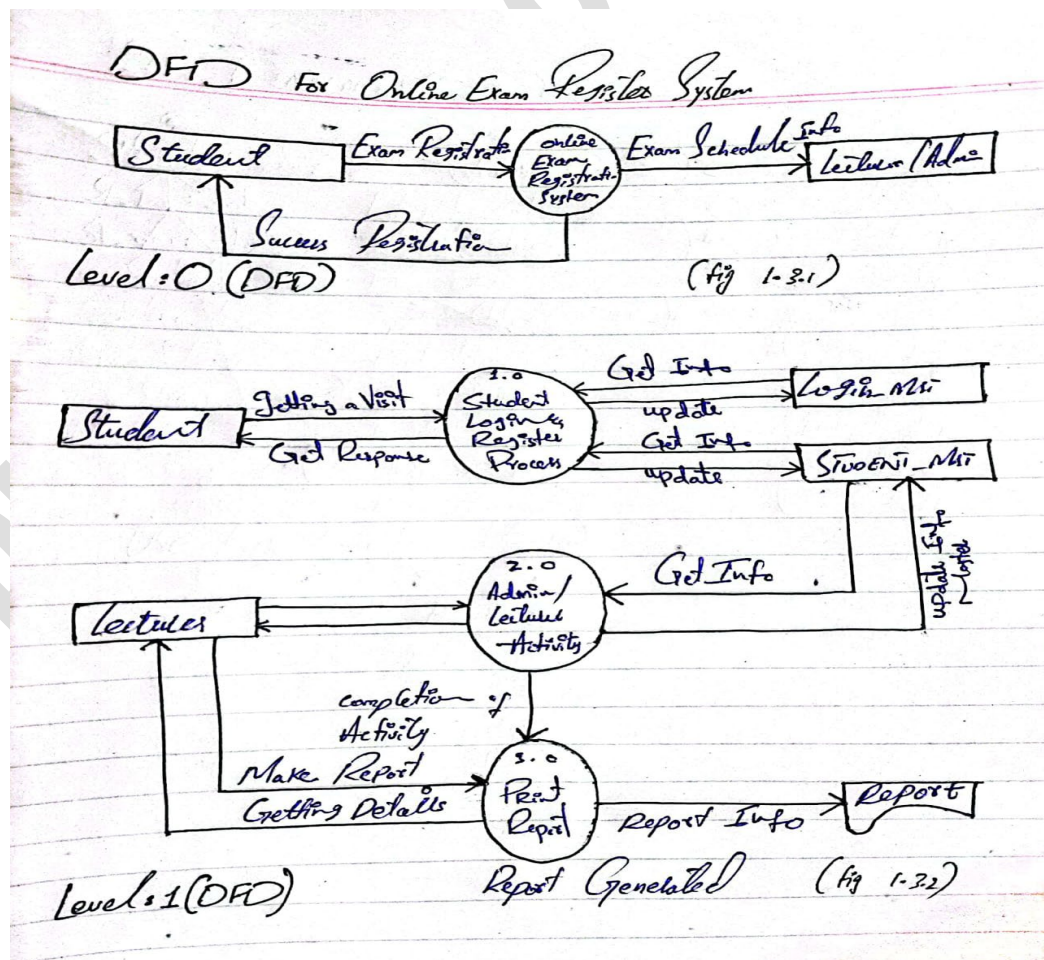 DFD For Online Exam Register System
Student
Exam Registrate
Online
Exam
Registrati
System
Exam Schedule Info
Lecturer / Admi
Success Registration
Level:0 (DFD)
(fig 1.3.1)
Student
Getting a Visit
Get Response
1.0
Student
Login &
Register
Process
Get Info
update
Get Info
update
Login_Mst
STUDENT_MST
2.0
Admin/
Lecturer
Activity
Get Info
update Info
Lectures
completion of
Activity
Make Report
Getting Details
3.0
Print
Report
Report Info
Report
Report Generated
(fig 1.3.2)
Level:1 (DFD)